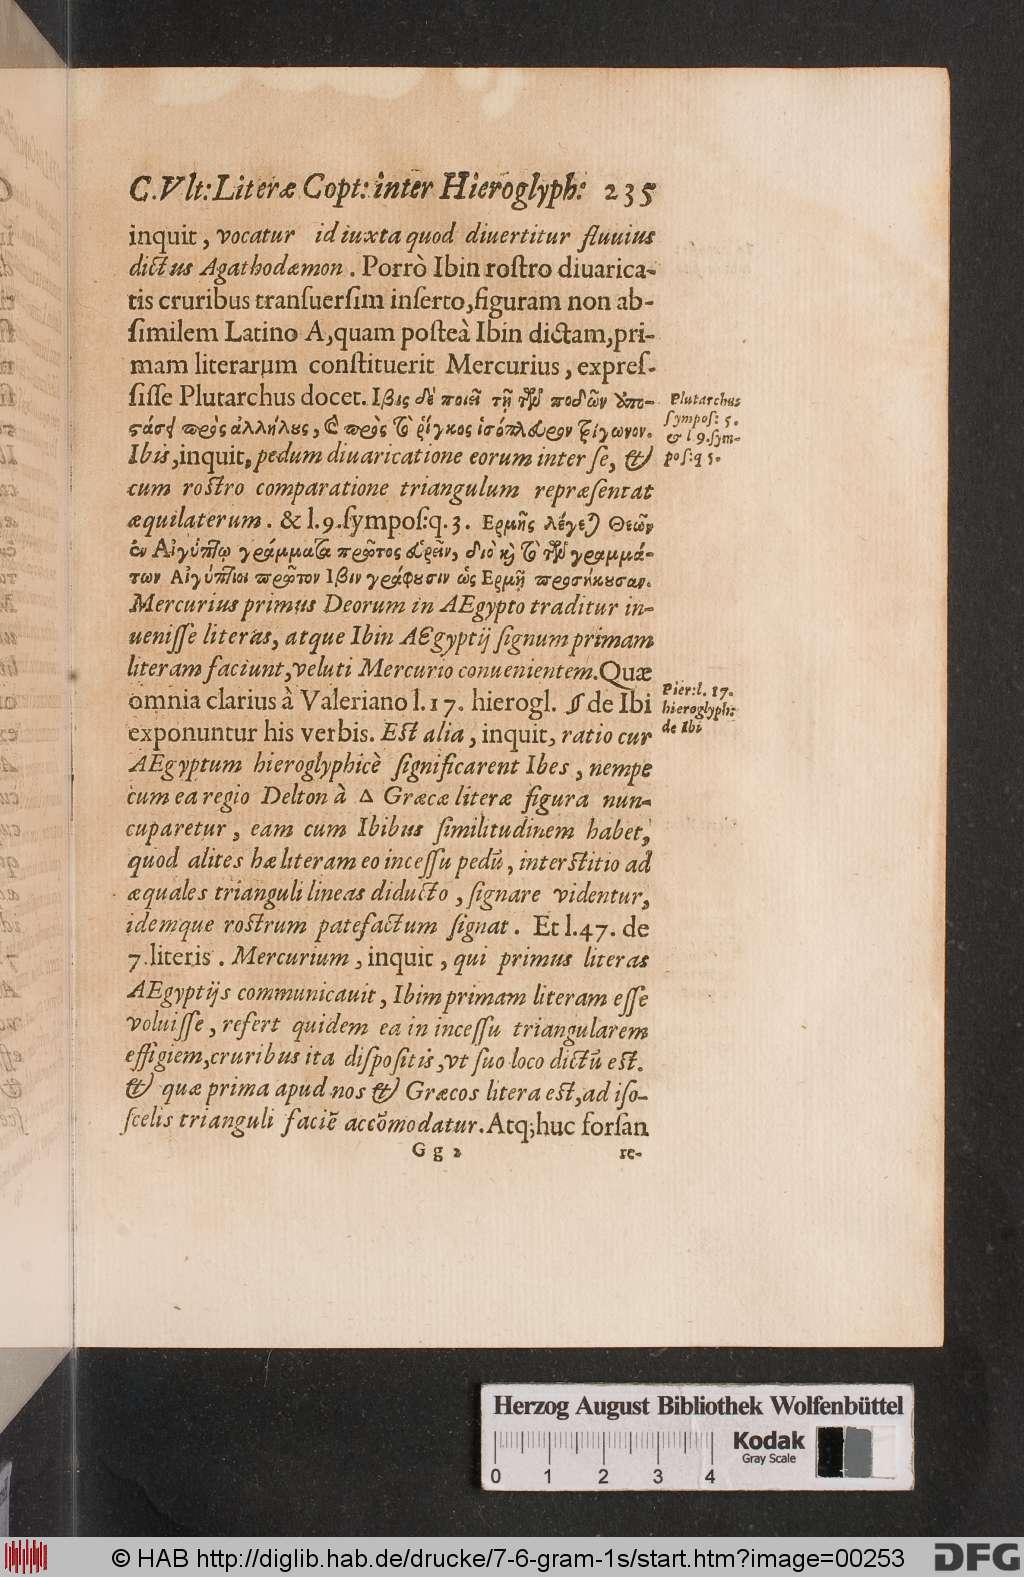 C.Vlt: Literæ Copt: inter Hieroglyph: 235
inquit, vocatur id iuxta quod diuertitur fluuius
dictus Agathodæmon. Porrò Ibin roſtro diuarica-
tis cruribus tranſuerſim inſerto, figuram non ab-
ſimilem Latino A, quam poſteà Ibin dictam, pri-
mam literarum conſtituerit Mercurius, expreſ-
ſiſſe Plutarchus docet. Ιβις δὲ ποιεῖ τῇ τῶν ποδῶν ὑπο-
ςάσῃ πρὸς ἀλλήλους, καὶ πρὸς τὸ ῥύγκος ἰσόπλευρον τρίγωνον.
Ibis, inquit, pedum diuaricatione eorum inter ſe, &
cum roſtro comparatione triangulum repræſentat
æquilaterum. & l.9. ſympoſ: q. 3. Ερμῆς λέγεται Θεῶν
ἐν Αἰγύπτῳ γράμματα πρῶτος εὑρεῖν, διὸ καὶ τὸ τῶν γραμμά-
των Αἰγύπτιοι πρῶτον Ιβιν γράφουσιν ὡς Ερμῇ προσήκουσαν.
Mercurius primus Deorum in AEgypto traditur in-
ueniſſe literas, atque Ibin AEgyptij ſignum primam
literam faciunt, veluti Mercurio conuenientem. Quæ
omnia clarius à Valeriano l. 17. hierogl. § de Ibi
exponuntur his verbis. Eſt alia, inquit, ratio cur
AEgyptum hieroglyphicè ſignificarent Ibes, nempe
cum ea regio Delton à Δ Græcæ literæ figura nun-
cuparetur, eam cum Ibibus ſimilitudinem habet,
quod alites hæ literam eo inceſſu pedū, interſtitio ad
æquales trianguli lineas diducto, ſignare videntur,
idemque roſtrum patefactum ſignat. Et l. 47. de
7. literis. Mercurium, inquit, qui primus literas
AEgyptijs communicauit, Ibim primam literam eſſe
voluiſſe, refert quidem ea in inceſſu triangularem
effigiem, cruribus ita diſpoſitis, vt ſuo loco dictū eſt.
& quæ prima apud nos & Græcos litera eſt, ad iſo-
ſcelis trianguli faciē accōmodatur. Atq; huc forſan
G g 2 re-
Plutarchus
ſympoſ: 5.
& l 9. ſym-
poſ: q 5.
Pier: l. 17.
hieroglyph:
de Ibi
Herzog August Bibliothek Wolfenbüttel
0 1 2 3 4
Kodak
Gray Scale
© HAB http://diglib.hab.de/drucke/7-6-gram-1s/start.htm?image=00253
DFG